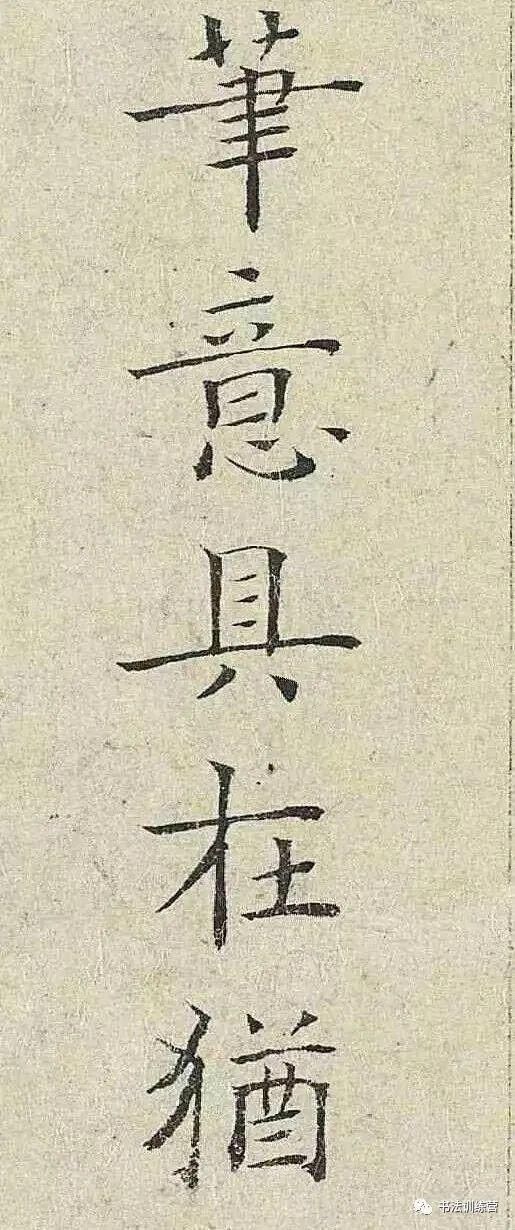 筆意具在猶
书法训练营